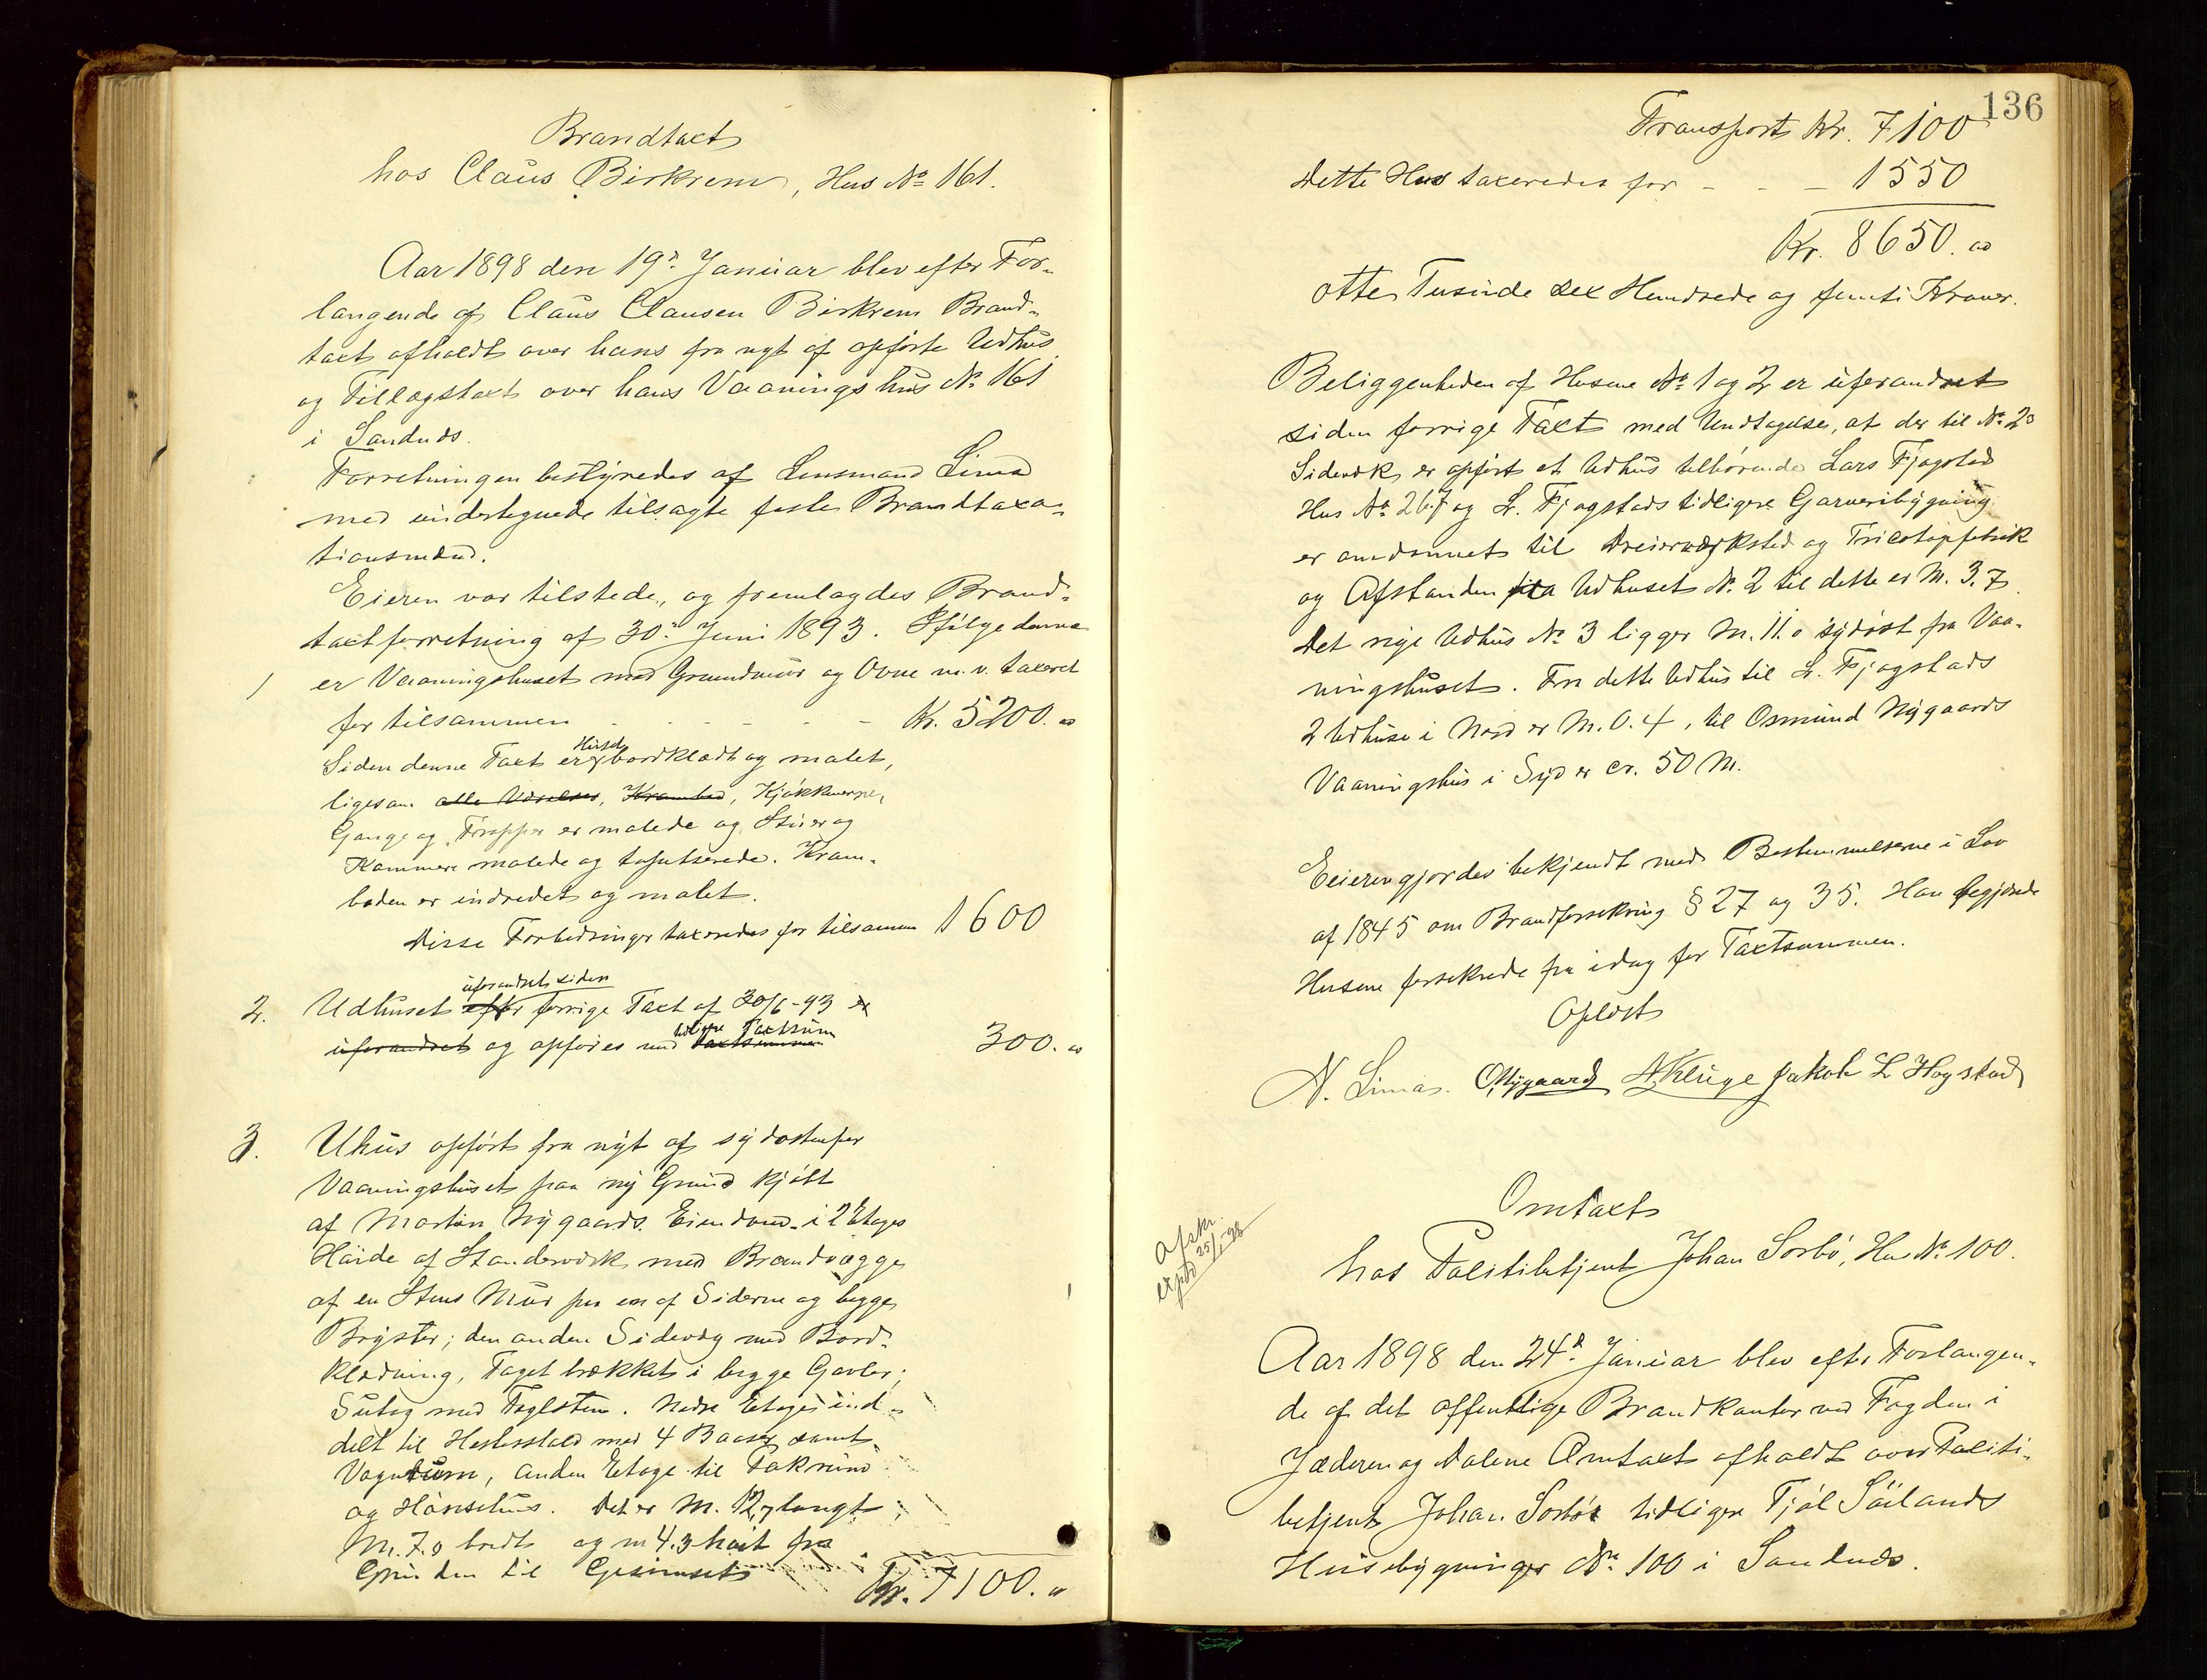 Brandtaxt
hos Claus Birkrem, Hus № 161.
Aar 1898 den 19de Januar blev efter For-
langende af Claus Clausen Birkrem Brand-
taxt afholdt over hans fra nyt af opførte Udhus
og Tillægstaxt over hans Vaaningshus № 161
i Sandnæs.
Forretningen bestyredes af Lensmand Lima
med undertegnede tilsagte faste Brandtaxa-
tionsmænd.
Eieren var tilstede, og fremlagdes Brand-
taxtforretning af 30te Juni 1893. Ifølge denne
1 er Vaaningshuset med Grundmur og Ovne m.v. taxeret
for tilsammen - - - - - - Kr. 5200.00
Siden denne Taxt er Huset bordklædt og malet,
ligesom alle Værelser, Krambod, Kjøkkenerne,
Gange og Trapper er malede og Stuer og
Kammere malede og tapetserede. Kram-
boden er indredet og malet.
Disse Forbedringer taxeredes for tilsammen 1600
2. Udhuset efter uforandret siden forrige Taxt af 30/6-93 er
uforandret og opføres med Taxtsummen tidligere Taxtsum 300.00
3. Uhus opført fra nyt af sydostenfor
Vaaningshuset paa ny Grund kjøbt
af Martin Nygaards Eiendom i 2 Etages
Høide af Standerværk med Brandvægge
af en Stens Mur paa en af Siderne og begge
Bryster; den anden Sidevæg med Bord-
klædning, Taget brækket i begge Gavler;
Sutag med Taglsten. Nedre Etage ind-
delt til Hestestald med 4 Baaser samt
Vognrum, anden Etage til Takrum
og Hønsehus. Det er M. 12,7 langt,
M. 7.0 bredt og m 4.3 høit fra
Grunden til Gesimset
Kr. 7100.00
136
Transport Kr. 7100
Dette Hus taxeredes for - - - 1550
Kr. 8650.00
otte Tusinde sex Hundrede og femti Kroner.
Beliggenheden af Husene № 1 og 2 er uforandret
siden forrige Taxt med Undtagelse, at der til № 2s
Sidevæk er opført et Udhus tilhørende Lars Fjogstad
Hus № 267 og L. Fjogstads tidligere Garveribygning
er omdannet til Dreierværksted og Tricotagefabrik
og Afstanden fra Udhuset № 2 til dette er M. 3.7.
Det nye Udhus № 3 ligger M. 11.0 sydøst fra Vaa-
ningshuset. Fra dette Udhus til L. Fjogstads
2 Udhuse i Nord er M. 0.4, til Osmund Nygaards
Vaaningshus i Syd er cr. 50 M.
Eieren gjordes bekjendt med Bestemmelserne i Lov
af 1845 om Brandforsikring § 27 og 35. Han begjærede
Husene forsikrede fra idag for Taxtsummen.
Oplæst
N. Lima. O Nygaard A. Kluge Jakob L Hogstad
Omtaxt
hos Politibetjent Johan Sørbø, Hus № 100.
Afskr.
expd 25/1-98
Aar 1898 den 24de Januar blev efter Forlangen-
de af det offentlige Brandkontor ved Fogden i
Jæderen og Dalene Omtaxt afholdt over Politi-
betjent Johan Sørbø tidligere Tjøl Sølands
Husebygninger № 100 i Sandnæs.